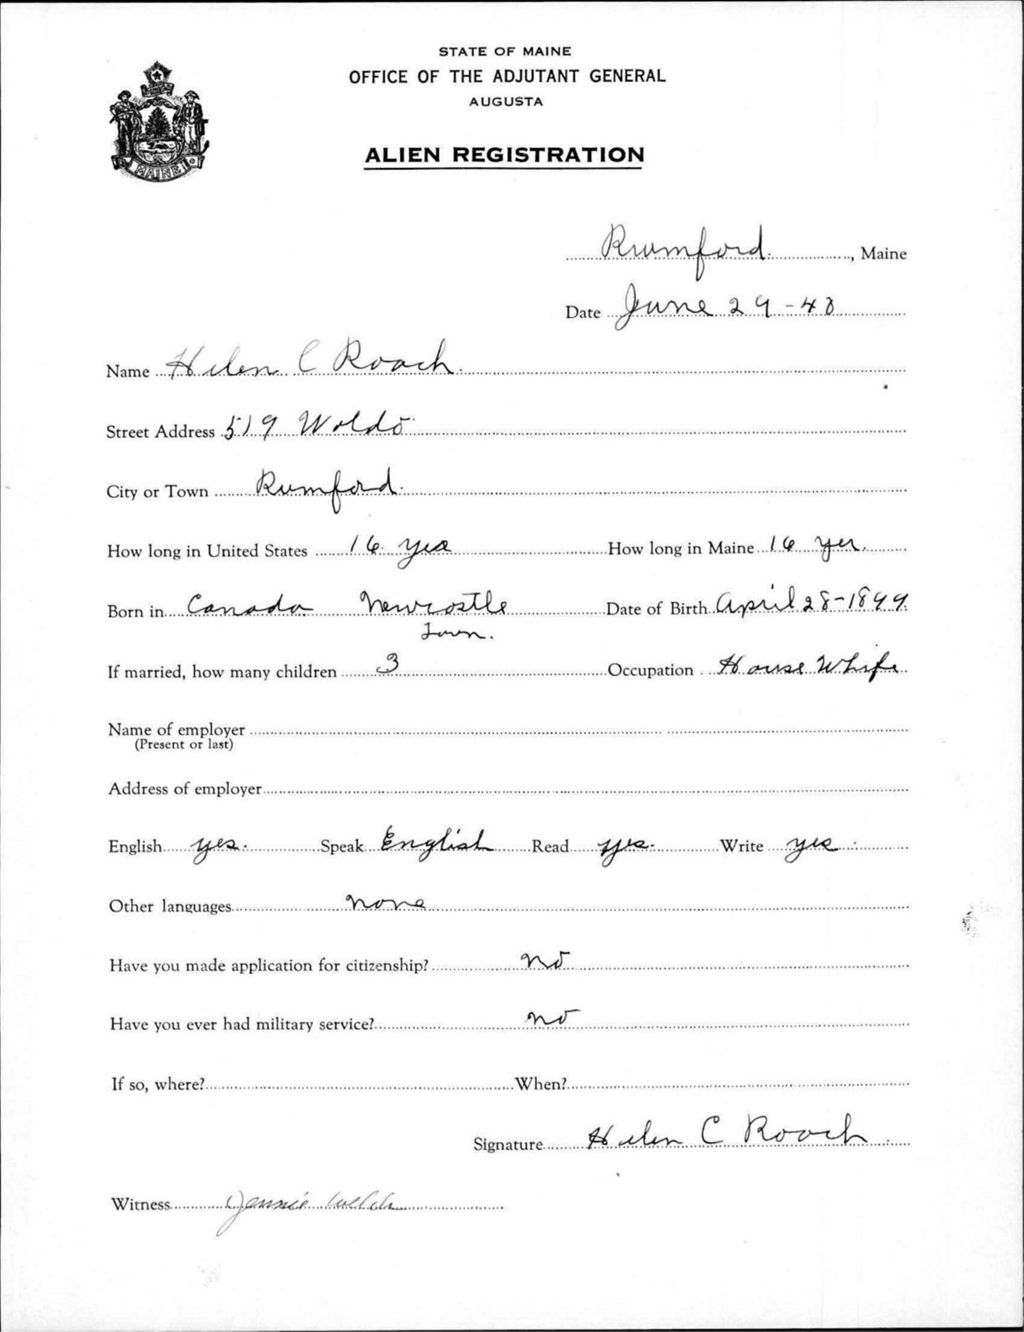 STATE OF MAINE
OFFICE OF THE ADJUTANT GENERAL
AUGUSTA
ALIEN REGISTRATION
MAINE
Rumford, Maine
Date June 29-40
Name Helen C Roach
Street Address 519 Woldo
City or Town Rumford
How long in United States 16 yrs How long in Maine 16 yer
Born in Canada Newcastle Date of Birth April 28-1899
Town.
If married, how many children 3 Occupation House Whife
Name of employer
(Present or last)
Address of employer
English yes. Speak English Read yes. Write yes
Other languages none
Have you made application for citizenship? no
Have you ever had military service? no
If so, where? When?
Signature Helen C Roach
Witness Jennie Welch